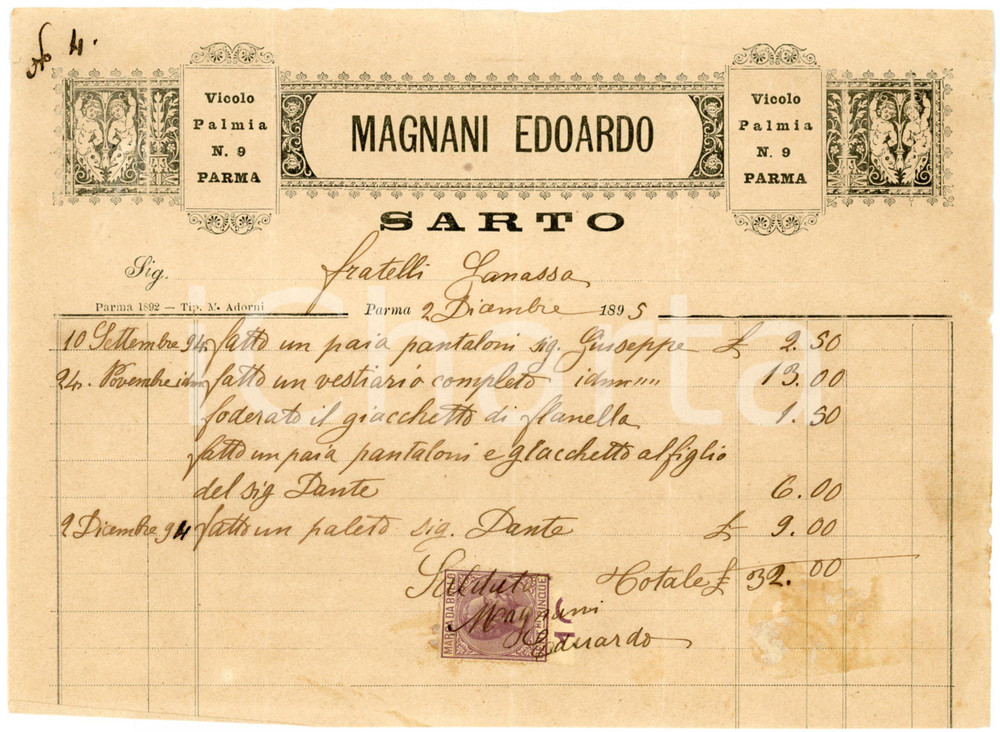 No 4.
Vicolo
Palmia
N. 9
PARMA
MAGNANI EDOARDO
Vicolo
Palmia
N. 9
PARMA
SARTO
Sig. fratelli Lanassa
Parma 1892 — Tip. M. Adorni
Parma 2 Diecmbre 1895
10 Settembre 94. fatto un paia pantaloni sig. Giuseppe £ 2.50
24. Novembre idm fatto un vestiario completo idm """ 13.00
foderato il giacchetto di flanella 1.50
fatto un paia pantaloni e giacchetto al figlio
del sig Dante 6.00
2 Diecmbre 94 fatto un paletò sig. Dante £ 9.00
Salduto Totale £ 32.00
Magnani
Edduardo
MARCA DA BOLLO
iCharta